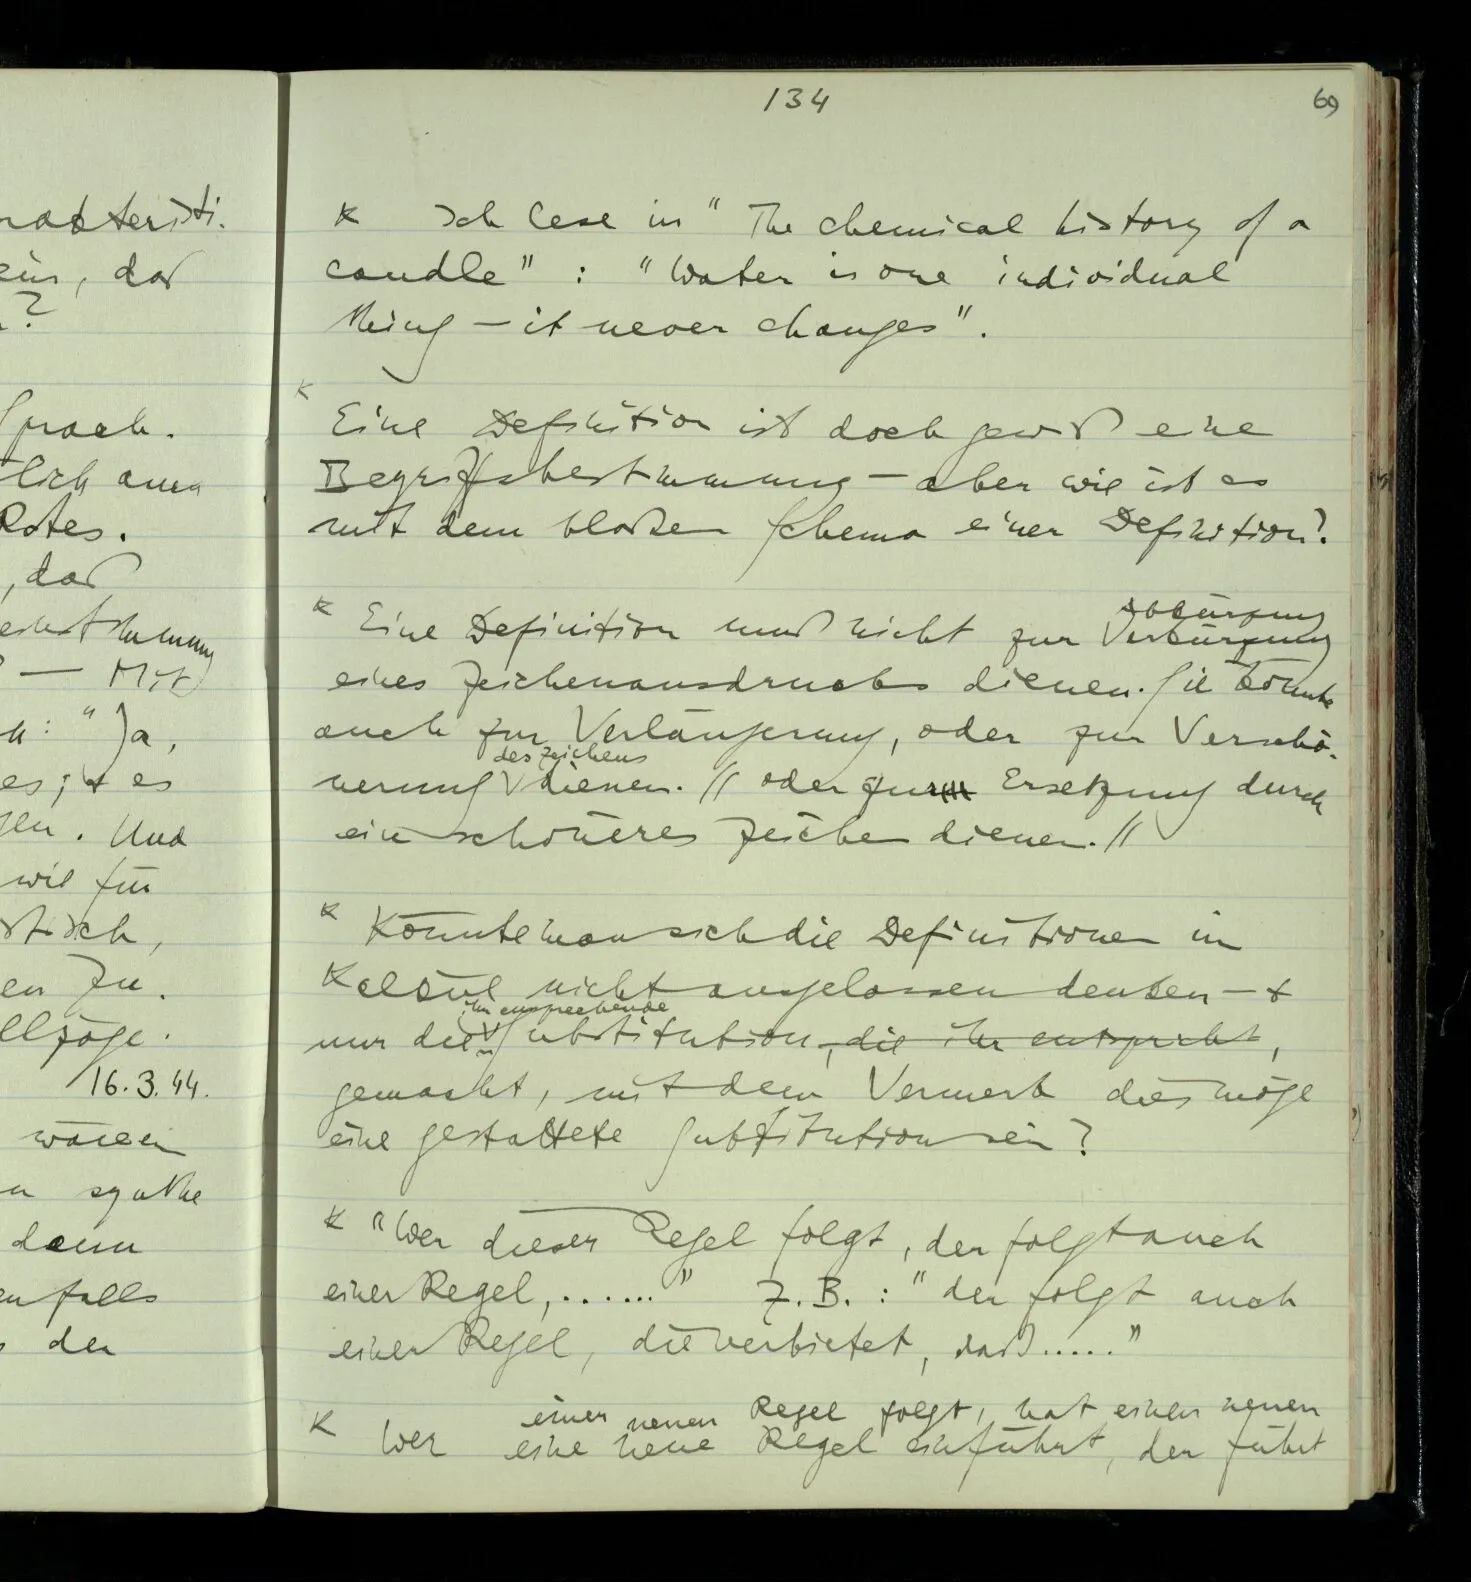 134
69
rakteristi-
ein, daß
?
Sprach-
lich auch
Rotes.
, daß
estimmung
— Mit
: "Ja,
es; & es
gen. Und
wie für
stisch,
en zu.
llzöge.
16.3.44.
wären
synthe
dann
enfalls
der
K Ich lese in "The chemical history of a
candle" : "Water is one individual
thing — it never changes".
K
Eine Definition ist doch gewiß eine
Begriffsbestimmung — aber wie ist es
mit dem bloßen Schema einer Definition?
Abkürzung
K Eine Definition muß nicht zur Verkürzung
eines Zeichenausdrucks dienen. Sie könnte
auch zur Verlängerung, oder zur Verschö-
des Zeichens
nerung ∨ dienen. // oder zur Ersetzung durch
ein schöneres Zeichen dienen. //
K Könnte man sich die Definitionen im
Kalkül nicht ausgelassen denken — &
ihr entsprechende
nur die ∨ Substitution, die ihr entspricht,
gemacht, mit dem Vermerk dies möge
eine gestattete Substitution sein?
K "Wer dieser Regel folgt, der folgt auch
einer Regel, ......" Z.B.: "der folgt auch
einer Regel, die verbietet, daß....."
einer neuen Regel folgt, hat einen neuen
K Wer eine neue Regel einführt, der führt